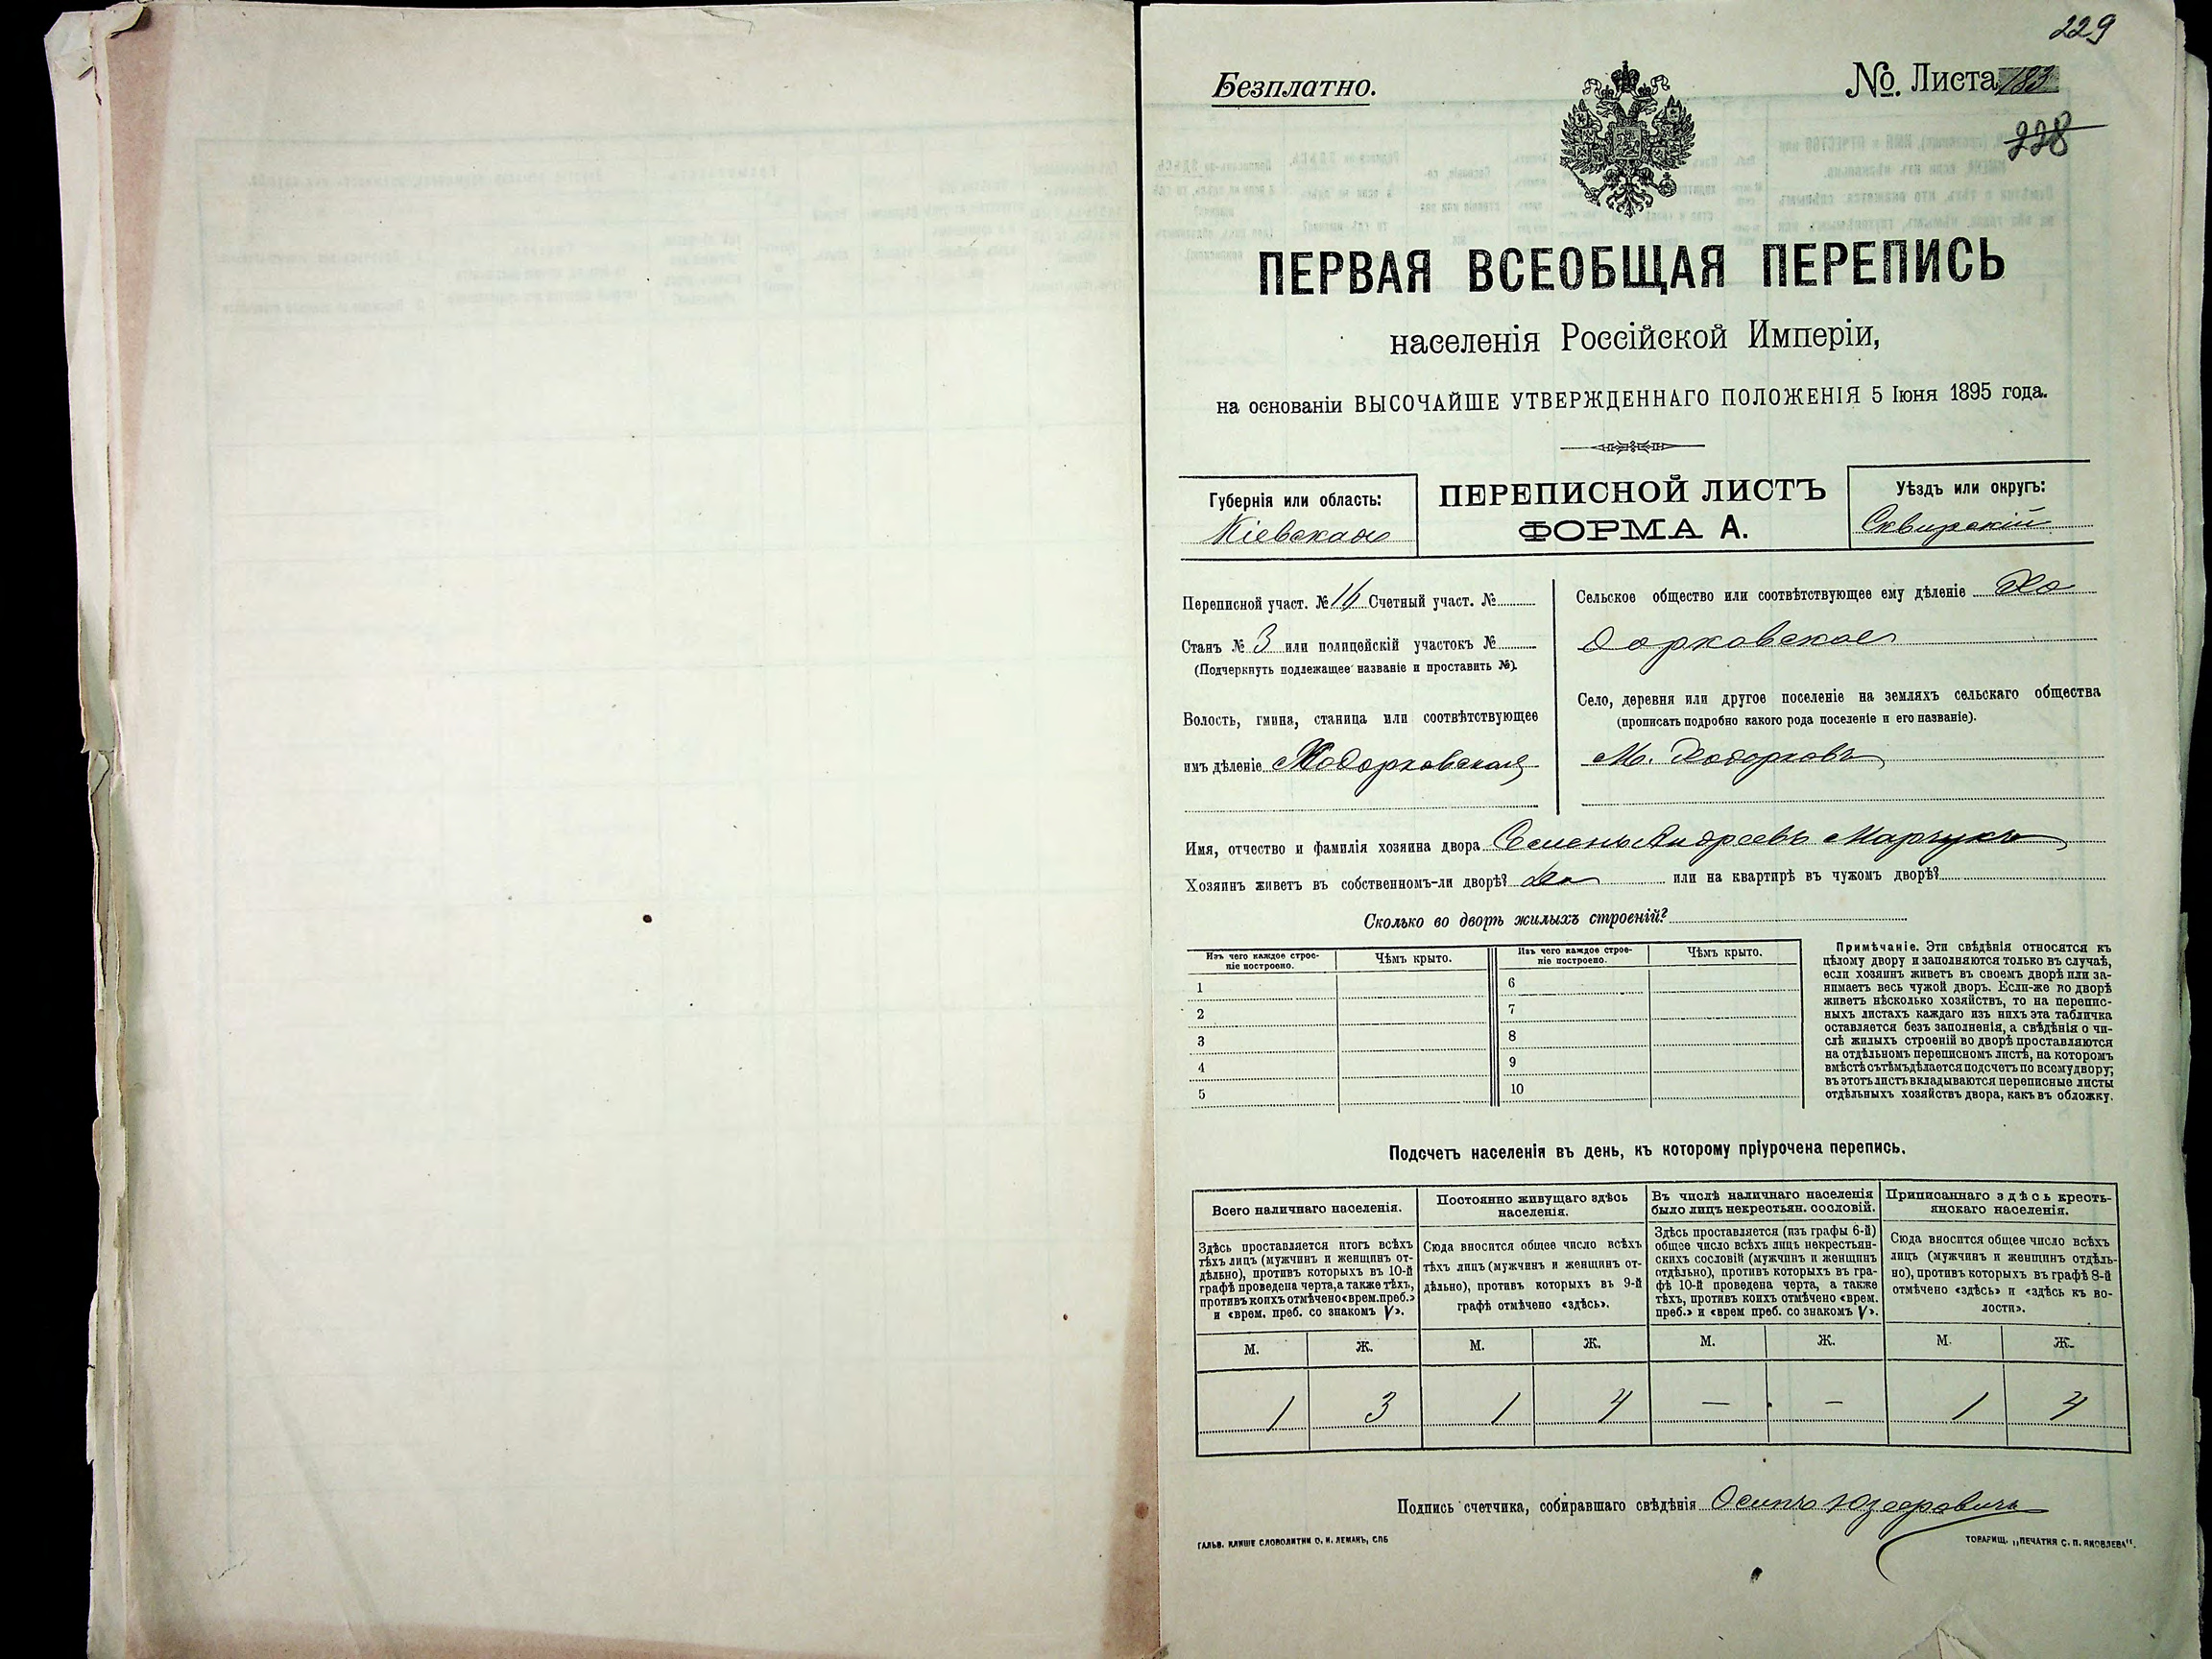 229
Безплатно.
№ Листа 183
228
ПЕРВАЯ ВСЕОБЩАЯ ПЕРЕПИСЬ
населенія Россійской Имперіи,
на основаніи ВЫСОЧАЙШЕ УТВЕРЖДЕННАГО ПОЛОЖЕНІЯ 5 Іюня 1895 года.
Губернія или область:
Кіевская
ПЕРЕПИСНОЙ ЛИСТЪ
ФОРМА А.
Уѣздъ или округъ:
Сквирскій
Переписной участ. № 16 Счетный участ. №
Станъ № 3 или полицейскій участокъ №
(Подчеркнуть подлежащее названіе и проставить №).
Волость, гмина, станица или соотвѣтствующее
имъ дѣленіе Ходорковская
Сельское общество или соотвѣтствующее ему дѣленіе Хо
дорковское
Село, деревня или другое поселеніе на земляхъ сельскаго общества
(прописать подробно какого рода поселеніе и его названіе).
М. Ходорковъ
Имя, отчество и фамилія хозяина двора Семенъ Андреевъ Марчукъ
Хозяинъ живетъ въ собственномъ-ли дворѣ? да или на квартирѣ въ чужомъ дворѣ?
Сколько во дворѣ жилыхъ строеній?
Изъ чего каждое строе-
ніе построено.
Чѣмъ крыто.
Изъ чего каждое строе-
ніе построено.
Чѣмъ крыто.
1
2
3
4
5
6
7
8
9
10
Примѣчаніе. Эти свѣдѣнія относятся къ
цѣлому двору и заполняются только въ случаѣ,
если хозяинъ живетъ въ своемъ дворѣ или за-
нимаетъ весь чужой дворъ. Если-же во дворѣ
живетъ нѣсколько хозяйствъ, то на перепис-
ныхъ листахъ каждаго изъ нихъ эта табличка
оставляется безъ заполненія, а свѣдѣнія о чи-
слѣ жилыхъ строеній во дворѣ проставляются
на отдѣльномъ переписномъ листѣ, на которомъ
вмѣстѣ съ тѣмъ дѣлается подсчетъ по всему двору;
въ этотъ листъ вкладываются переписные листы
отдѣльныхъ хозяйствъ двора, какъ въ обложку.
Подсчетъ населенія въ день, къ которому пріурочена перепись.
Всего наличнаго населенія.
Здѣсь проставляется итогъ всѣхъ
тѣхъ лицъ (мужчинъ и женщинъ от-
дѣльно), противъ которыхъ въ 10-й
графѣ проведена черта, а также тѣхъ,
противъ коихъ отмѣчено «врем. преб.»
и «врем. преб. со знакомъ V».
Постоянно живущаго здѣсь
населенія.
Сюда вносится общее число всѣхъ
тѣхъ лицъ (мужчинъ и женщинъ от-
дѣльно), противъ которыхъ въ 9-й
графѣ отмѣчено «здѣсь».
Въ числѣ наличнаго населенія
было лицъ некрестьян. сословій.
Здѣсь проставляется (изъ графы 6-й)
общее число всѣхъ лицъ некрестьян-
скихъ сословій (мужчинъ и женщинъ
отдѣльно), противъ которыхъ въ гра-
фѣ 10-й проведена черта, а также
тѣхъ, противъ коихъ отмѣчено «врем.
преб.» и «врем преб. со знакомъ V».
Приписаннаго здѣсь кресть-
янскаго населенія.
Сюда вносится общее число всѣхъ
лицъ (мужчинъ и женщинъ отдѣль-
но), противъ которыхъ въ графѣ 8-й
отмѣчено «здѣсь» и «здѣсь къ во-
лости».
М. Ж. М. Ж. М. Ж. М. Ж.
1 3 1 4 — — 1 4
Подпись счетчика, собиравшаго свѣдѣнія Осипъ Юзефовичъ
ГАЛЬВ. КЛИШЕ СЛОВОЛИТНИ О. И. ЛЕМАНЪ, СПБ
ТОВАРИЩ. „ПЕЧАТНЯ С. П. ЯКОВЛЕВА“.